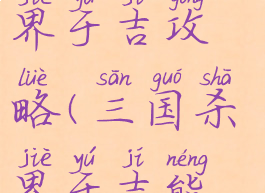 jiè yú jí gōng
界于吉攻
lüè sān guó shā
略(三国杀
jiè yú jí néng
界于吉能